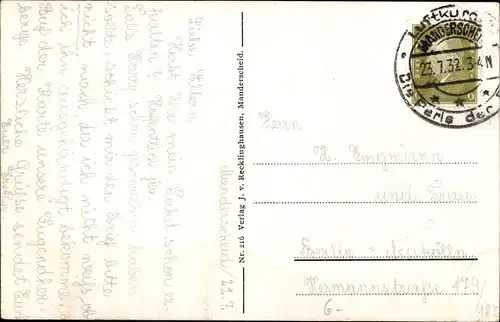 Manderscheid/22.7.
Liebe Eltern
Habt Ihr mein Paket schon er-
halten?
Falls Harry schon geschrieben haben
sollte schickt mir den Brief bitte
nicht nach, da ich nicht weiß, ob
ich ihn ausgehändigt bekomme.
Auf der Karte unsere Jugendher=
berge. Herzliche Grüße sendet Euch
Euer
Nr. 216 Verlag J. v. Recklinghausen, Manderscheid.
Luftkurort
MANDERSCHEID
23.7.32. 3-4N
Die Perle der
6
Herrn
und Frau
Berlin = Neukölln
Hermannstraße 179/
6-